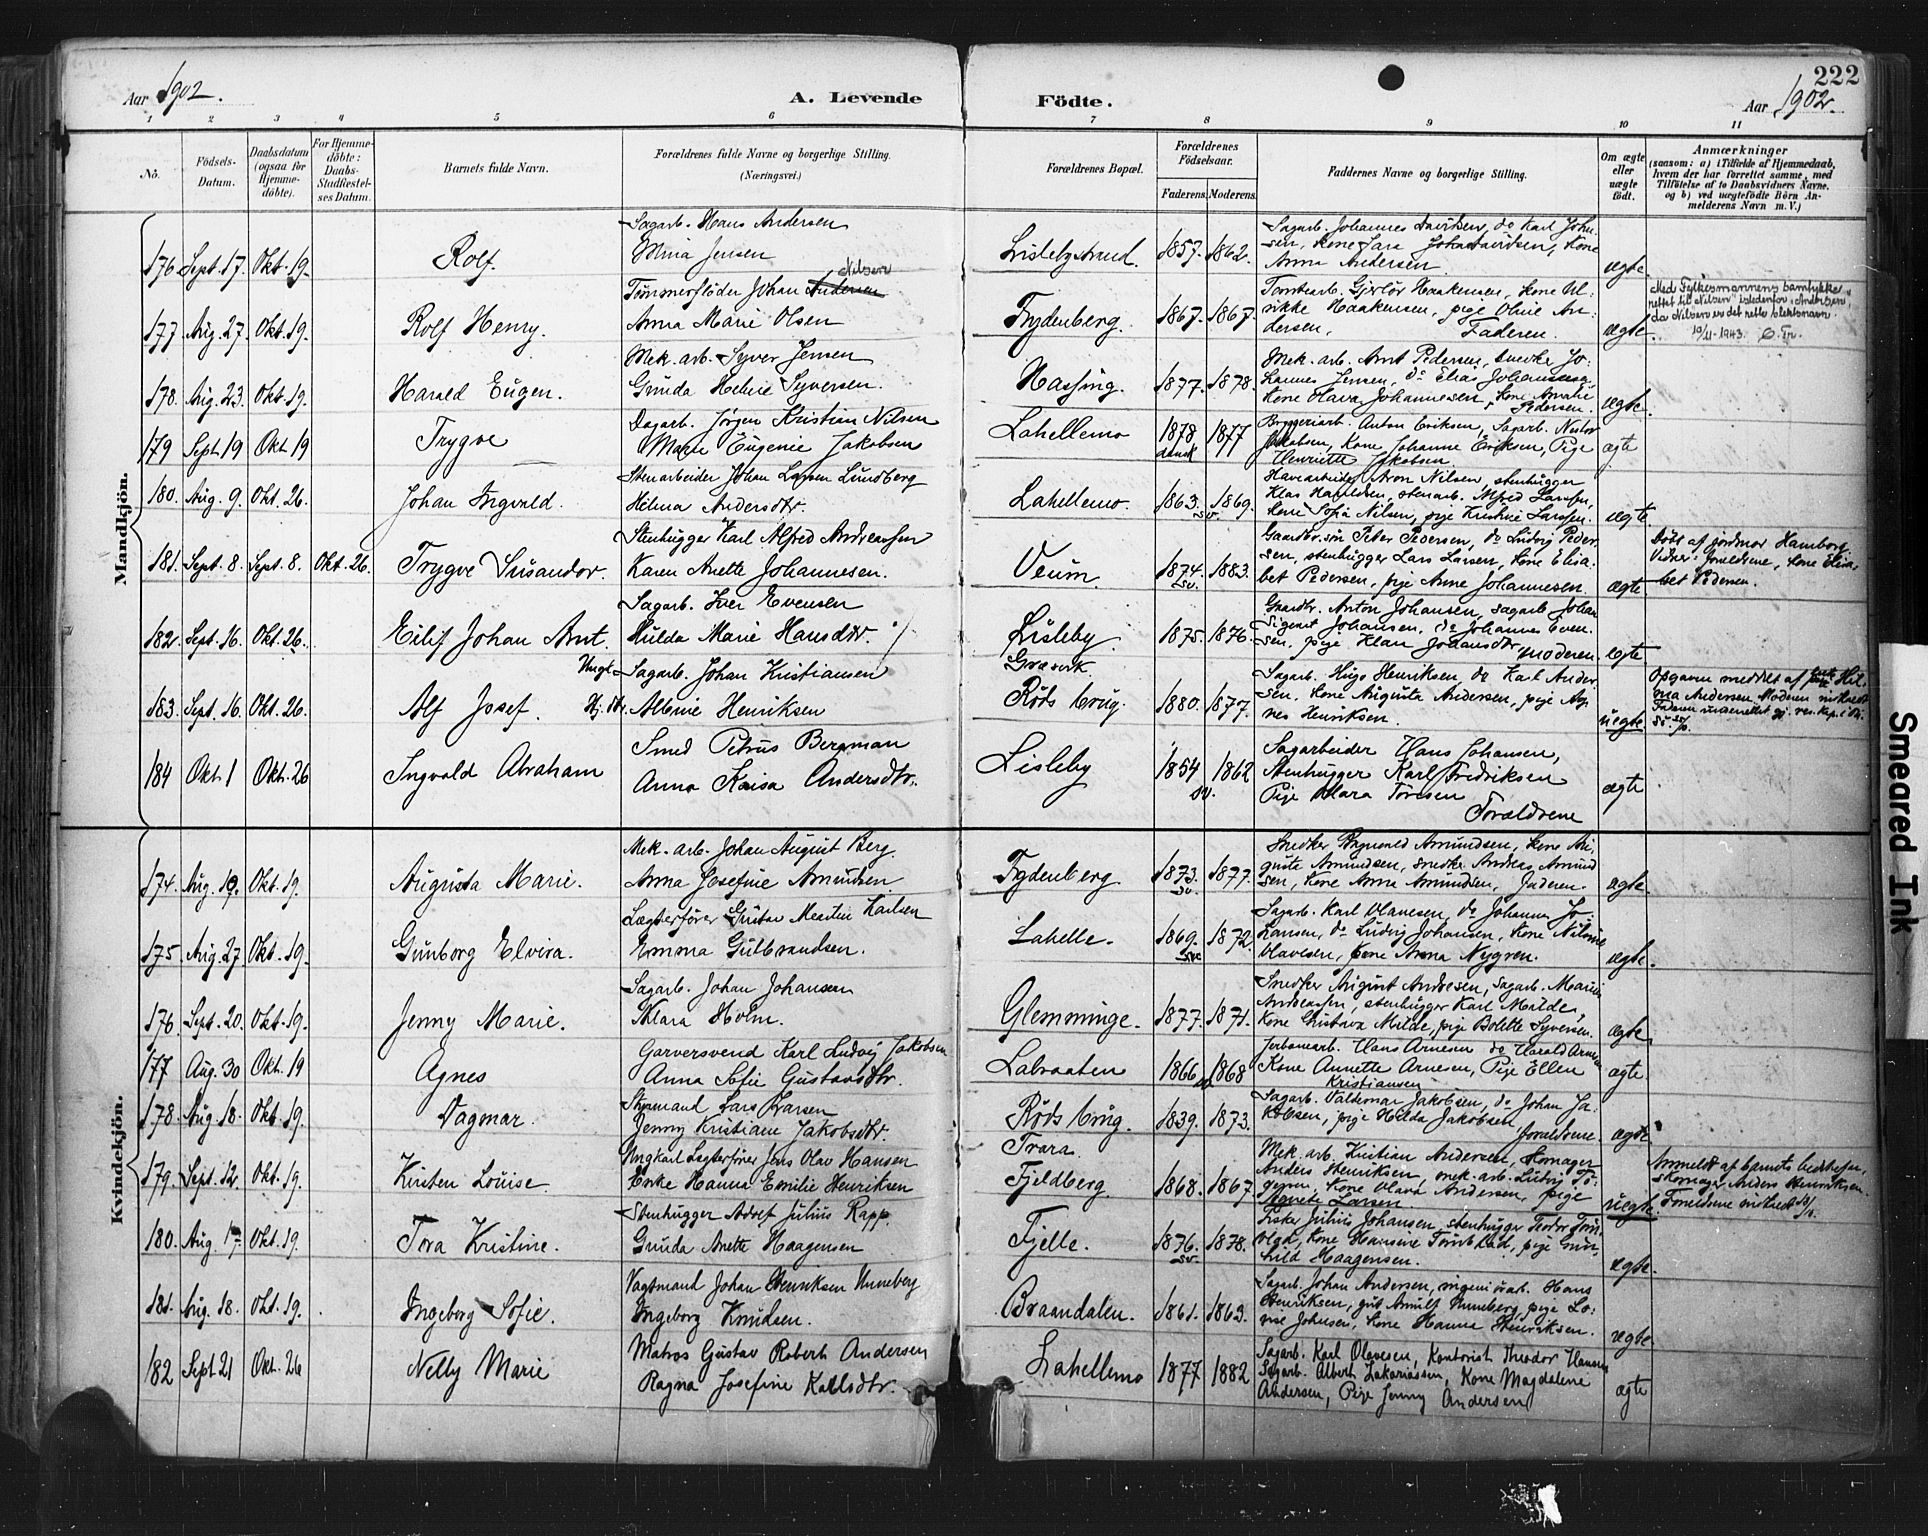 222
Aar 1902.
A. Levende
Födte.
Aar 1902.
1 2 3 4 5 6 7 8 9 10 11
No.
Födsels-Datum.
Daabsdatum (ogsaa for Hjemmedöbte).
For Hjemmedöbte: Daabs-Stadfæstelses Datum.
Barnets fulde Navn.
Forældrenes fulde Navne og borgerlige Stilling. (Næringsvei.)
Forældrenes Bopæl.
Forældrenes Födselsaar.
Faderens. Moderens.
Faddernes Navne og borgerlige Stilling.
Om ægte eller uægte födt.
Anmærkninger
(saasom: a) i Tilfælde af Hjemmedaab, hvem der har forrettet samme, med Tilföielse af to Daabsvidners Navne, og b) ved uægtefödte Börn Anmelderens Navn m. V.)
Mandkjön.
176 Sept. 17. Okt. 19. Rolf.
Sagarb. Hans Andersen
Mina Jensen
Lislebystrand. 1857. 1862.
Sagarb. Johannes Davidsen, do Karl Johan-
sen, Kone Sara Davidsen, Kone
Anna Andersen. ægte.
177. Aug. 27. Okt. 19. Rolf Henry.
Tømmerfløder Johan Andersen Nilsen
Anna Marie Olsen
Frydenberg. 1867. 1867.
Tomtearb. Haakensen, Kone Ul-
rikke Haakensen, pige Oline An-
dersen, Faderen. ægte.
Med Fylkesmannens samtykke
rettet til "Nilsen" istedenfor "Andersen",
da Nilsen er det rette slektsnavn.
19/11-1943.
178. Aug. 23. Okt. 19. Harald Eugen.
Mek. arb. Syver Jensen
Gunda Helene Syversen.
Hassing. 1877. 1878.
Mek. arb. Arnt Pedersen, snedker Jo-
hannes Jensen, do Elias Johannesen,
Kone Olava Johannesen, Kone Amalie
Pedersen. ægte.
179 Sept 19 Okt 19 Trygve
Dagarb. Jørgen Kristian Nilsen
Marie Eugenie Jakobsen
Lahellemo 1878 dansk 1877
Bryggeriarb. Anton Eriksen, Sagarb. Nestor
Jakobsen, Kone Johanne Eriksen, Pige
Henriette Jakobsen ægte
180. Aug. 9. Okt. 26. Johan Ingvald.
Stenarbeider Johan Larsen Lundberg
Helena Andersdtr.
Lahellemo. 1863. sv. 1869.
Havearbeider Aron Nilsen, stenhugger
Klas Haraldsen, stenarb. Alfred Larssen,
Kone Sofia Nilsen, pige Kristine Larssen. ægte
181. Sept. 8. Sept. 8. Okt. 26. Trygve Susandor.
Stenhugger Karl Alfred Andreassen
Karen Anette Johannesen.
Veum. 1874. sv. 1883.
Gaardbr. søn Peter Pedersen, do Ludvig Peder-
sen, stenhugger Lars Larsen, Kone Elisa-
bet Pedersen, pige Anne Johannesen. ægte
Døbt af jordmor Hamborg.
Vidner: Forældrene, Kone Elisa-
bet Pedersen.
182. Sept. 16. Okt. 26. Eilif Johan Arnt.
Sagarb. Iver Evensen
Hulda Marie Hansdtr.
Lisleby. 1875. 1876.
Gaardbr. Anton Johansen, sagarb. Johan
Sigvart Johansen, do Johannes Even-
sen, pige Klara Johansdtr, moderen. ægte
183. Sept. 16. Okt. 26. Alf Josef.
Ungk. Sagarb. Johan Kristiansen
Albine Henriksen
Græsvik. Røds brug. 1880. 1877.
Sagarb. Hugo Henriksen, do Karl Ander-
sen, Kone Augusta Andersen, pige Ag-
nes Henriksen. uægte.
Opgaven meddelt af Hil-
ma Andersen.
184 Okt. 1 Okt. 26 Ingvald Abraham
Smed Petrus Bergman
Anna Kaisa Andersdtr.
Lisleby 1854 sv. 1862
Sagarbeider Hans Johansen,
Stenhugger Karl Fredriksen
Pige Klara Toresen
Forældrene ægte
Kvindekjön.
174. Aug. 19. Okt. 19. Augusta Marie.
Mek. arb. Johan August Berg.
Anna Josefine Amundsen
Frydenberg 1873. sv. 1877.
Snedker Ragnvald Amundsen, Kone Au-
gusta Amundsen, snedker Andreas Amund-
sen, Kone Anna Amundsen, Faderen. ægte.
175. Aug. 27. Okt. 19. Gunborg Elvira.
Lægterfører Gustav Martin Karlsen
Emma Gulbrandsen.
Lahelle. 1869. sv. 1872.
Sagarb. Karl Olavesen, do Johannes Jo-
hansen, do Ludvig Johansen, Kone Nilsine
Olavesen, Kone Anna Nygren. ægte.
176. Sept. 20. Okt. 19. Jenny Marie.
Sagarb. Johan Johansen
Klara Holm.
Glemminge. 1877. 1871.
Snedker August Andresen, Sagarb. Marius
Andreassen, stenhugger Karl Milde,
Kone Gustava Milde, pige Bolette Syversen. ægte.
177 Aug. 30 Okt 19 Agnes
Garversvend Karl Ludvig Jakobsen
Anna Sofie Gustavsdtr.
Labraaten 1866 sv 1868
Jerbanearb. Hans Arnesen do Harald Arnesen
Kone Annette Arnesen, Pige Ellen
Kristiansen ægte.
178. Aug. 18. Okt. 19. Dagmar.
Styrmand Lars Larsen
Jenny Kristiane Jakobsdtr.
Røds brug. 1839. 1873.
Sagarb. Valdemar Jakobsen, do Johan Ja-
kobsen, pige Hilda Jakobsen, forældrene. ægte.
179. Sept. 12. Okt. 19. Kirsten Louise.
Ungkarl Lægterfører Jens Olav Hansen
Enke Hanna Emilie Henriksen
Trara. Fjeldberg. 1868. 1867.
Mek. arb. Kristian Andersen, Skomager
Anders Henriksen, mek. arb. Ludvig
Kone Olava Andersen, pige
Agnete Larsen. uægte.
Anmeldt af barnets bedstefar,
Skomager Anders Henriksen.
180. Aug. 17. Okt. 19. Tora Kristine.
Stenhugger Adolf Julius Rapp.
Gunda Anette Haagensen
Fjelle. 1876. sv. 1878.
Fisker Julius Johansen, stenhugger Teodor
Kone Hansine pige Gun-
hild Haagensen. ægte.
181. Aug. 18. Okt. 19. Ingeborg Sofie.
Vagtmand Johan Henriksen Unneberg
Ingeborg Knudsen.
Braandalen. 1861. 1863.
Sagarb. Johan Andersen, Hans
Henriksen, gut Arnulf Unneberg, pige Lo-
vise Johnsen, Kone Hanna Henriksen. ægte.
182 Sept 21 Okt. 26 Nelly Marie
Matros Gustav Robert Andersen
Ragna Josefine Karlsdtr.
Lahellemo 1877 1882
Sagarb. Karl Olavesen, Kontorist Theodor Hansen
Sagarb. Albert Zakariassen, Kone Magdalene
Andersen, Pige Jenny Andersen ægte
Smeared Ink